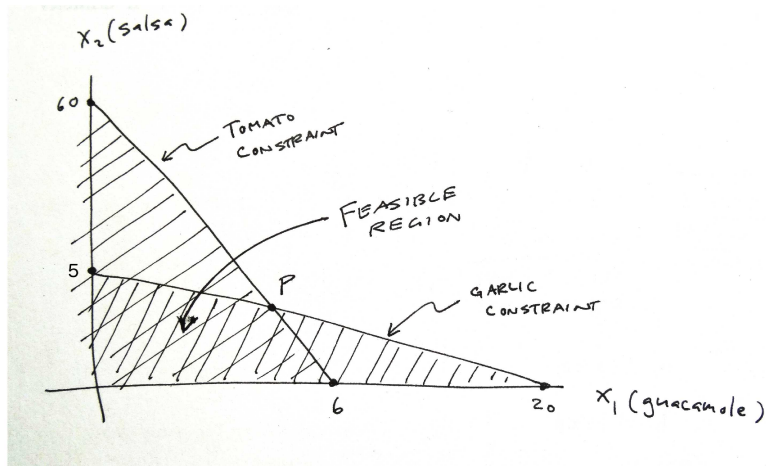 X₂ (salsa)
60
TOMATO
CONSTRAINT
FEASIBLE
REGION
5
P
GARLIC
CONSTRAINT
6
20
X₁ (guacamole)